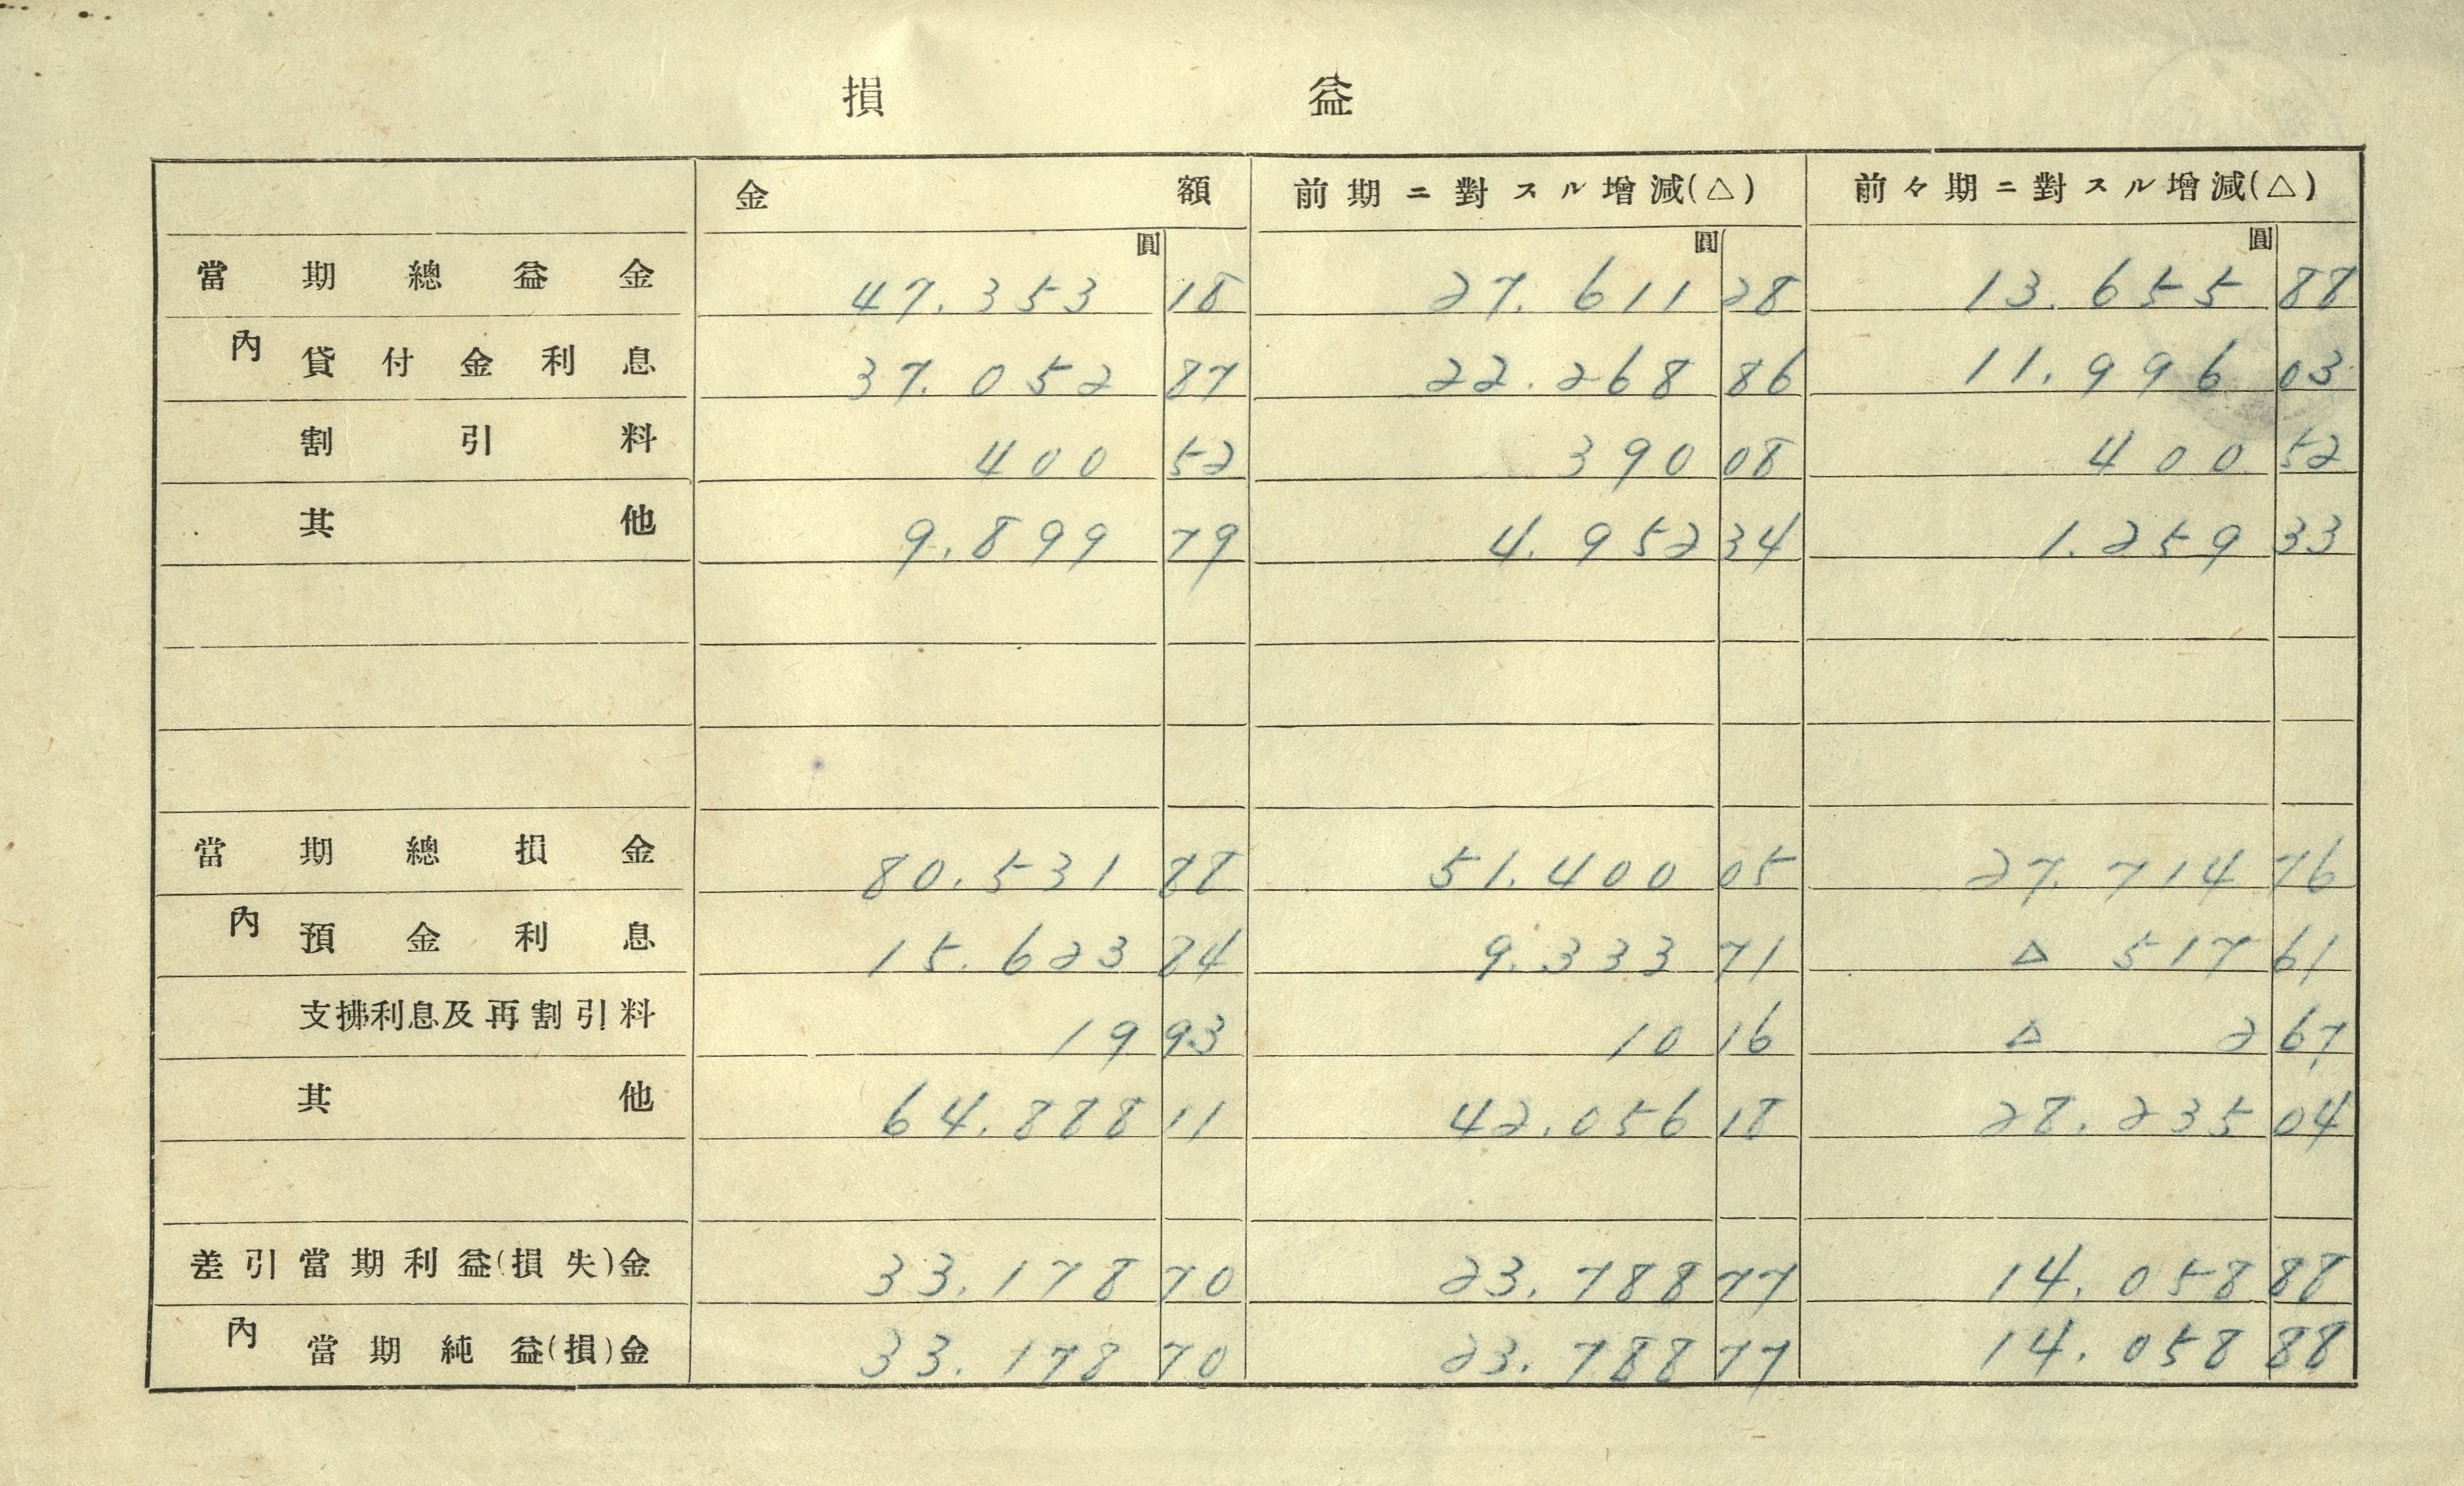 損 益
金 額 前期ニ對スル增減(△) 前々期ニ對スル增減(△)
圓 圓 圓
當期總益金 47.353 18 27.611 28 13.655 88
內 貸付金利息 37.052 87 22.268 86 11.996 03
割引料 400 52 390 08 400 52
其他 9.899 79 4.952 34 1.259 33
當期總損金 80.531 88 51.400 05 27.714 76
內 預金利息 15.623 84 9.333 71 △ 517 61
支拂利息及再割引料 19 93 10 16 △ 2 67
其他 64.888 11 42.056 18 28.235 04
差引當期利益(損失)金 33.178 70 23.788 77 14.058 88
內 當期純益(損)金 33.178 70 23.788 77 14.058 88